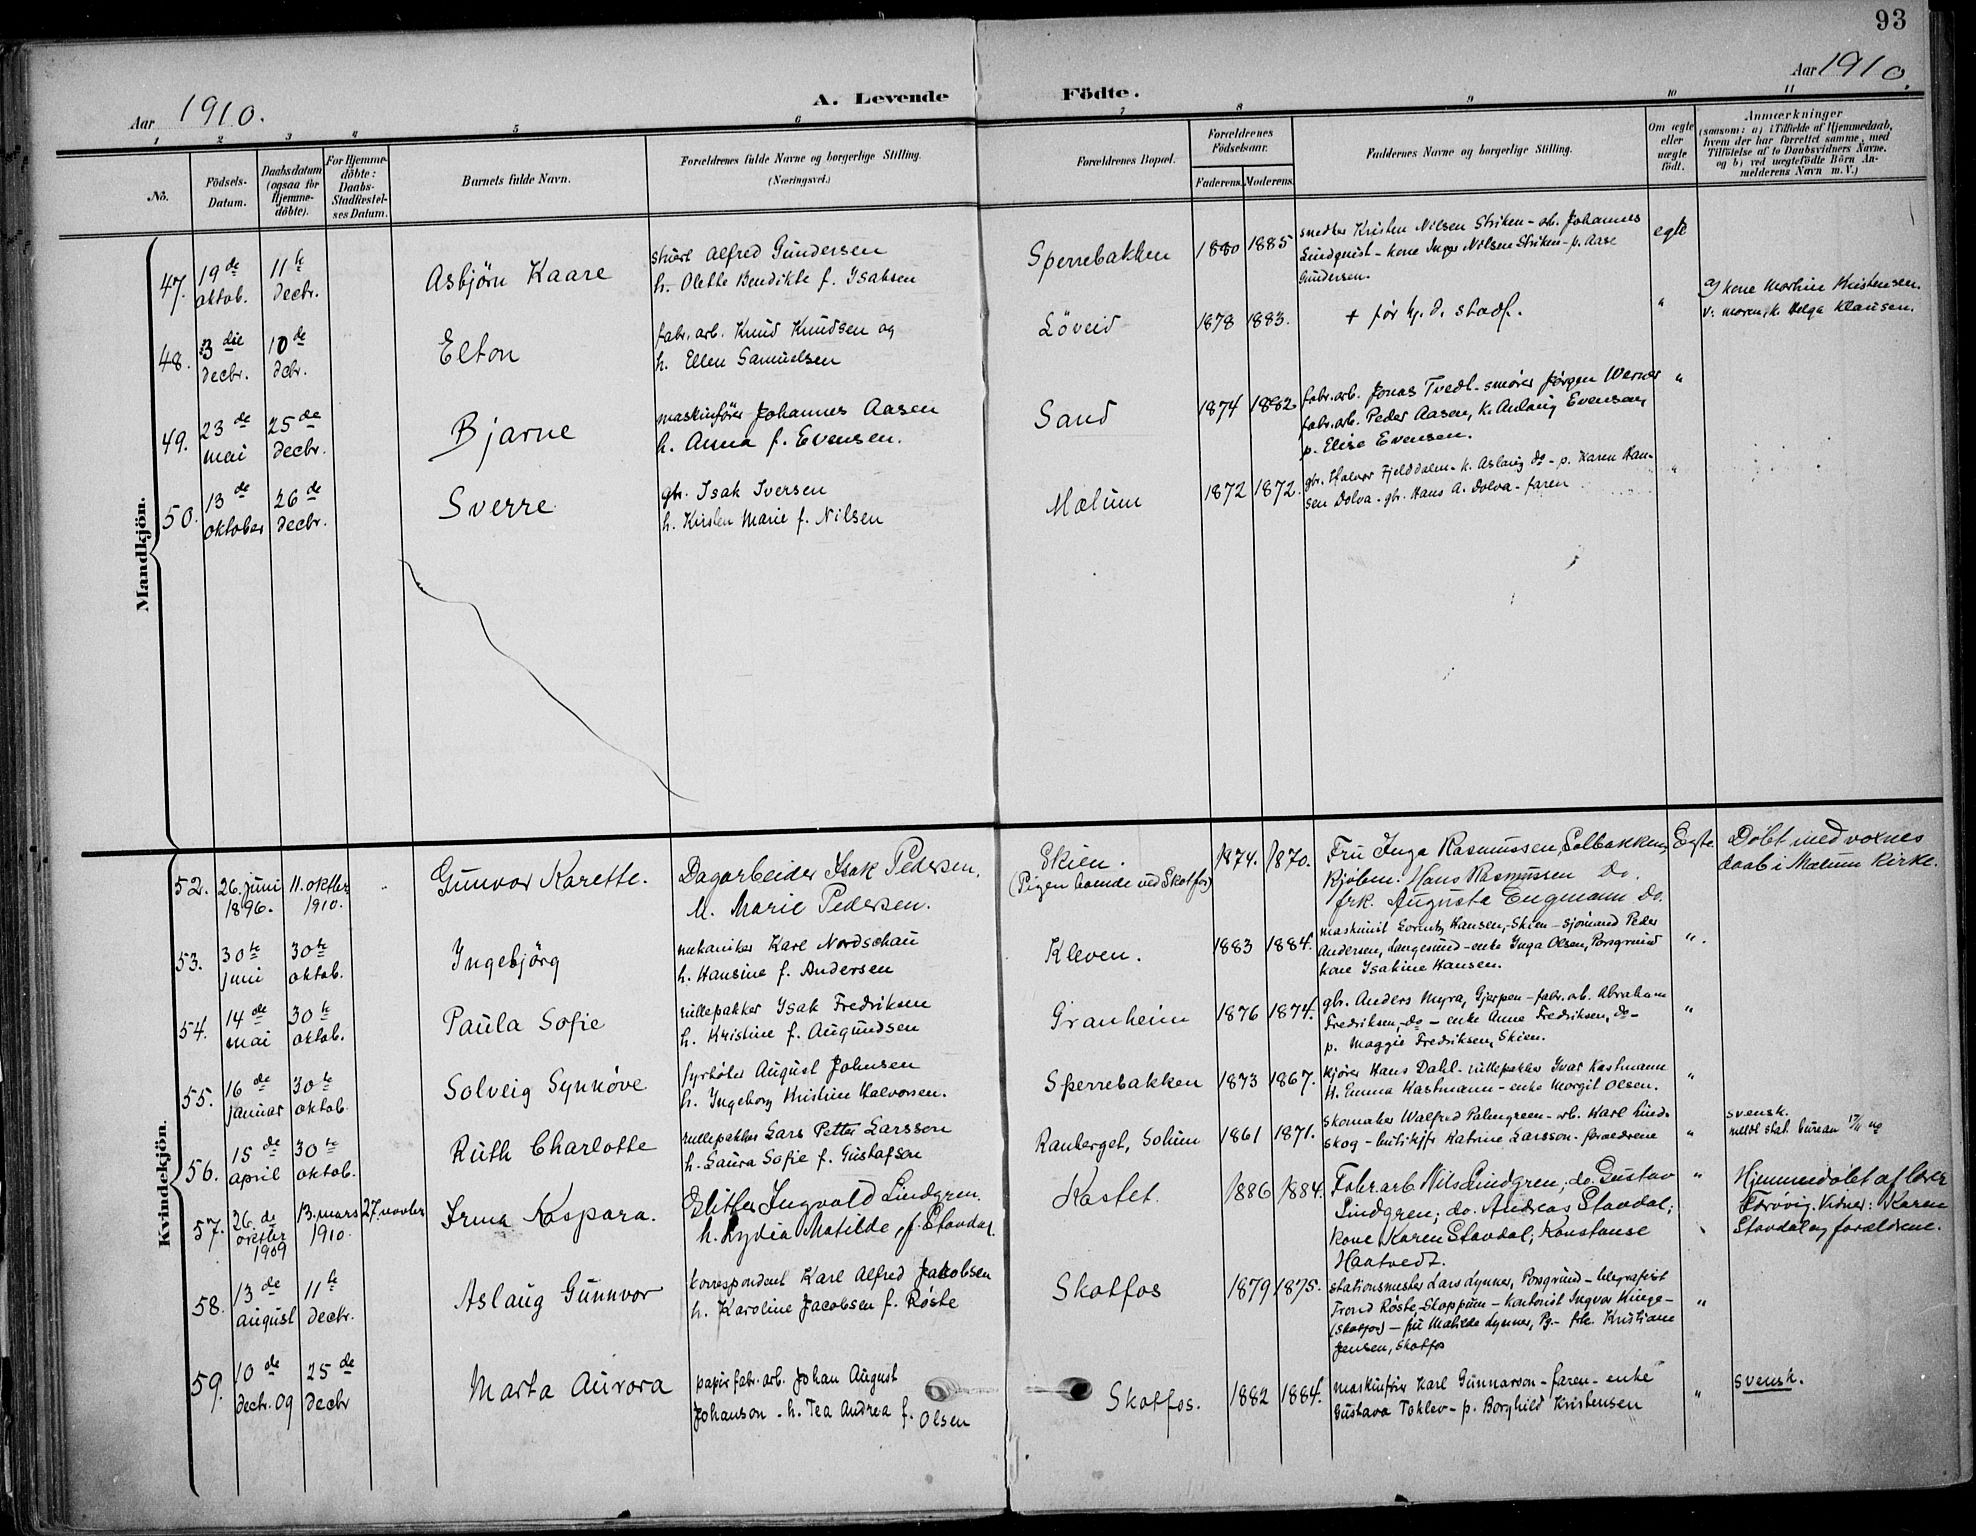 93
Aar 1910.
A. Levende Födte.
Aar 1910.
1 2 3 4 5 6 7 8 9 10 11
No.
Födsels-
Datum.
Daabsdatum
(ogsaa for
Hjemme-
döbte).
For Hjemme-
döbte:
Daabs-
Stadfæstel-
ses Datum.
Barnets fulde Navn.
Forældrenes fulde Navne og borgerlige Stilling.
(Næringsvei.)
Forældrenes Bopæl.
Forældrenes
Födselsaar.
Faderens. Moderens.
Faddernes Navne og borgerlige Stilling.
Om ægte
eller
uægte
födt.
Anmærkninger
(saasom: a) i Tilfælde af Hjemmedaab,
hvem der har forrettet samme, med
Tilföielse af to Daabsvidners Navne.
og b) ved uægtefödte Börn An-
melderens Navn m. V.)
Mandkjön.
47.
19de
oktob.
11te
decbr.
Asbjörn Kaare
Alfred Gundersen
h. Olette Bendikte f. Isaksen
Sperrebakken
1880 1885
Kristen Nilsen Striken - arb. Johannes
Lindquist - kone Inga Nilsen Striken - p. Aase
Gundersen.
egte
48.
3die
decbr.
10de
dcbr.
Elton
fabr. arb. Knud Knudsen og
h. Ellen Samuelsen
Löveid
1878 1883.
+ før hj. d. stadf.
"
a) kone Martine Kristensen.
v: moren, k. Helga Klausen.
49.
23de
mai
25de
decbr.
Bjarne
maskinfører Johannes Aasen
h. Anna f. Evensen.
Sand
1874 1882.
fabr. arb. Jonas Tvedt - smører Jørgen Werner
fabr. arb. Peder Aasen, k. Anlaug Evensen,
p. Elise Evensen.
"
50.
13de
oktober
26de
decbr.
Sverre
gbr. Isak Iversen
h. Kirsten Marie f. Nilsen
Mælum
1872 1872.
gbr. Halvor Fjelddalen - k. Aslaug do - p. Karen Han-
sen Dolva - gbr. Hans A. Dolva - faren
"
Kvindekjön.
52.
26. juni
1896.
11. oktbr
1910.
"
Gunvor Karette.
Dagarbeider Isak Pedersen,
M. Marie Pedersen.
Skien.
(Pigen boende ved Skotfos)
1874. 1870.
Fru Inga Rasmussen, Solbakken,
Kjøbm. Hans Rasmussen Do.
frk. Augusta Engmann Do.
Egte.
Døbt med voxnes
daab i Mælum Kirke.
53.
30te
juni
30te
oktob.
Ingebjörg
mekaniker Karl Nordschau
h. Hansine f. Andersen
Kleven.
1883 1884.
maskinist Lorentz Hansen, Skien - sjømand Peder
Andersen, Langesund - enke Inga Olsen, Porsgrund
kone Isakine Hansen.
".
54.
14de
mai
30te
oktob.
Paula Sofie
rullepakker Isak Fredriksen
h. Kristine f. Augundsen
Granheim
1876 1874.
gbr. Anders Myra, Gjerpen - fabr. arb. Abraham
Fredriksen, do - enke Anne Fredriksen, do -
p. Maggie Fredriksen, Skien.
"
55.
16de
januar
30te
oktob.
Solveig Synnöve
fyrbøter August Johnsen
h. Ingeborg Kristine Halvorsen.
Sperrebakken
1873 1867.
kjører Hans Dahl - rullepakker Ivar Hartmann
H. Emma Hartmann - enke Margit Olsen.
"
56.
15de
april
30te
oktob.
Ruth Charlotte
rullepakker Lars Petter Larsson
h. Laura Sofie f. Gustafsen
Rauberget, Solum
1861 1871.
skomaker Walfred Palmgreen - arb. Karl Lind-
skog - Katrine Larsson - forældrene
"
svensk.
meldt stat. bureau 17/11
57.
26. de
oktbr
1909
13. mars
1910.
27. novbr
Irma Kaspara.
Slitter Ingvald Lindgren.
h. Lydia Matilde, f. Stavdal.
Kastet.
1886 1884.
Fabr. arb Nils Lindgren; do. Gustav
Lindgren; do. Andreas Stavdal;
kone Karen Stavdal; Konstanse
Haatvedt.
"
Hjemmedøbt af lærer
Førøvig. Vidner: Karen
Stavdal og forældrene.
58.
13de
august
11te
decbr.
Aslaug Gunnvor
korrespondent Karl Alfred Jakobsen
h. Karoline Jacobsen f. Røste
Skotfos
1879 1875.
stationsmester Lars Lynner, Porsgrund - telegrafist
Trond Røste, Skoppum - kontorist Ingvar Kinge -
(Skotfos) - fru Matilde Lynner, Pg. - frk. Kristiane
Jensen, Skotfos
"
59.
10de
decbr. 09
25de
decbr
Marta Aurora
papirfabr. arb. Johan August
Johanson - h. Tea Andrea f. Olsen
Skotfos.
1882 1884.
maskinfører Karl Gunnarson - faren - enke
Gustava Toklev - p. Borghild Kristensen
"
svensk.